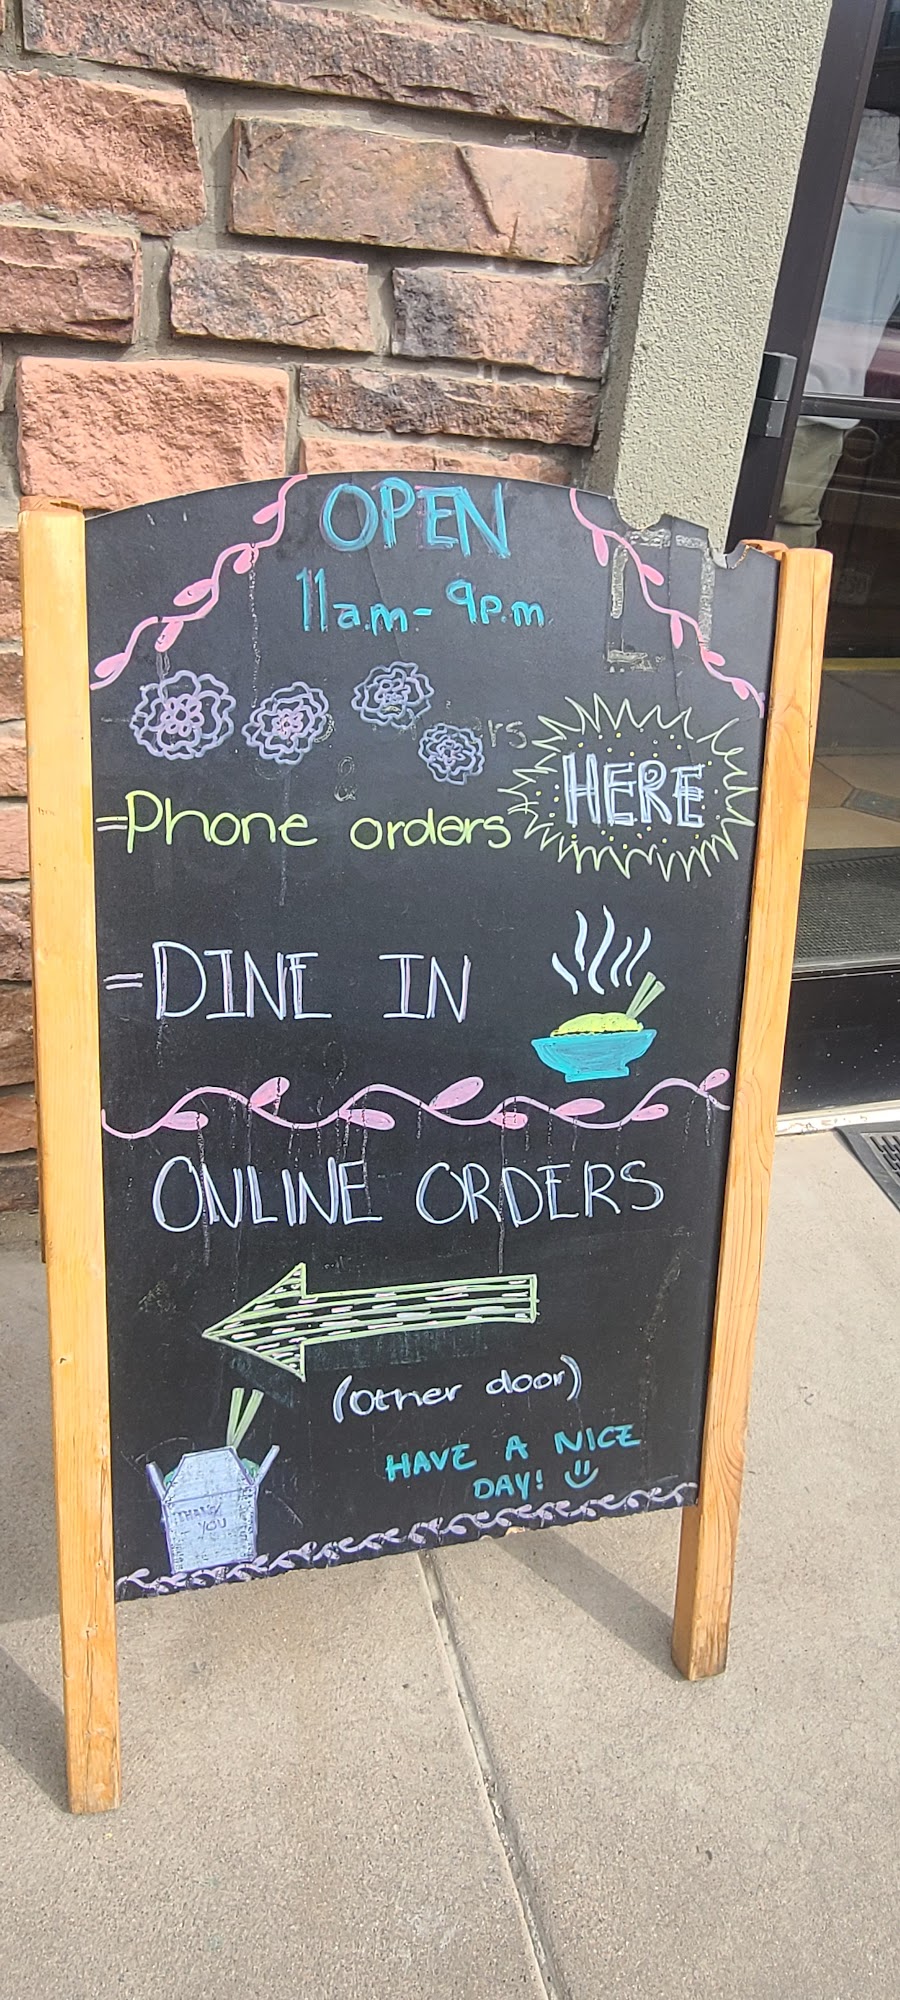 OPEN
11a.m - 9p.m
rs
&
=Phone orders
HERE
=DINE IN
ONLINE ORDERS
(other door)
HAVE A NICE
DAY!
THANK
YOU